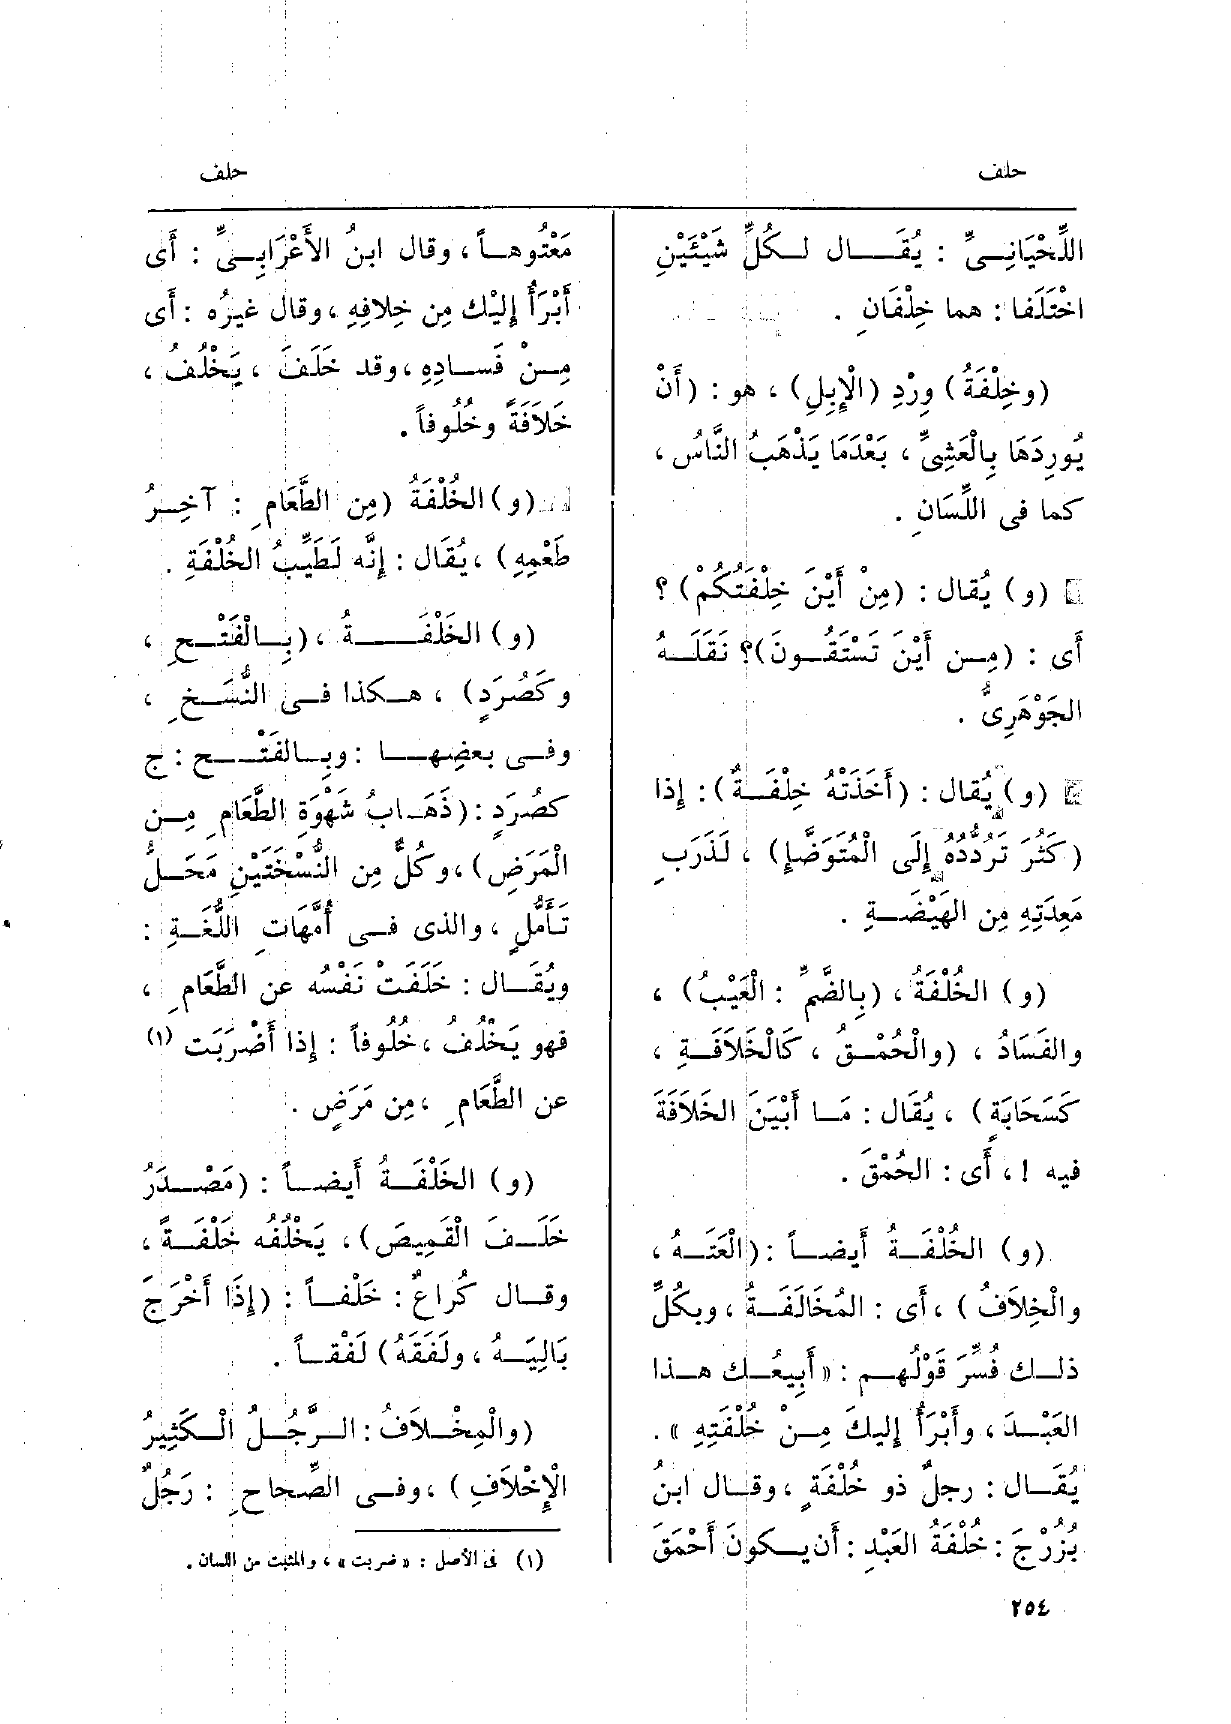 خلف
خلف
اللِّحْيَانِىِّ : يُقَال لكُلِّ شَيْئَيْنِ
اخْتَلَفا : هما خِلْفَانِ .
(وخِلْفَةُ) وِرْدِ (الْإِبِلِ) ، هو : (أَنْ
يُورِدَهَا بِالْعَشِىِّ ، بَعْدَمَا يَذْهَبُ النَّاسُ ،
كما فى اللِّسَانِ .
(و) يُقال : (مِنْ أَيْنَ خِلْفَتُكُمْ) ؟
أَى : (مِن أَيْنَ تَسْتَقُونَ)؟ نَقَلَهُ
الجَوْهَرِىُّ .
(و) يُقال : (أَخَذَتْهُ خِلْفَةٌ) : إِذا
(كَثُرَ تَرَدُّدُهُ إِلَى الْمُتَوَضَّإِ) ، لَذَرَبِ
مَعِدَتِهِ مِن الهَيْضَةِ .
(و) الخُلْفَةُ ، (بِالضَّمِّ : الْعَيْبُ) ،
والفَسَادُ ، (والْحُمْقُ ، كَالْخَلَافَةِ ،
كَسَحَابَةٍ) ، يُقَال : مَا أَبْيَنَ الخَلَافَةَ
فيه ! ، أَى : الحُمْقَ .
(و) الخُلْفَةُ أَيضاً : (الْعَتَهُ ،
والْخِلَافُ) ، أَى : المُخَالَفَةُ ، وبكُلِّ
ذلك فُسِّرَ قَوْلُهُم : « أَبِيعُك هذا
العَبْدَ ، وأَبْرَأُ إِليكَ مِنْ خُلْفَتِهِ » .
يُقَال : رجلٌ ذو خُلْفَةٍ ، وقال ابنُ
بُزُرْجَ : خُلْفَةُ العَبْدِ : أَن يكونَ أَحْمَقَ
مَعْتُوهاً ، وقال ابنُ الأَعْرَابِىِّ : أَى
أَبْرَأُ إِلَيْك مِن خِلافِهِ ، وقال غيرُه : أَى
مِنْ فَسادِهِ ، وقد خَلَفَ ، يَخْلُفُ ،
خَلَافَةً وخُلُوفاً .
(و) الخُلْفَةُ (مِن الطَّعَامِ : آخِرُ
طَعْمِهِ) ، يُقَال : إِنَّه لَطَيِّبُ الخُلْفَةِ .
(و) الخَلْفَةُ ، (بِالْفَتْحِ ،
وكَصُرَدٍ) ، هكذا فى النُّسَخِ ،
وفى بعضِها : وبِالفَتْح : ج
كصُرَدٍ : (ذَهَابُ شَهْوَةِ الطَّعَامِ مِن
الْمَرَضِ) ، وكُلٌّ مِن النُّسْخَتَيْنِ مَحَلُّ
تَأَمُّلٍ ، والذى فى أُمَّهَاتِ اللُّغَةِ :
ويُقَال : خَلَفَتْ نَفْسُه عن الطَّعَامِ ،
فهو يَخْلُفُ ، خُلُوفاً : إِذا أَضْرَبَت (١)
عن الطَّعَامِ ، مِن مَرَضٍ .
(و) الخَلْفَةُ أَيضاً : (مَصْدَرُ
خَلَفَ الْقَمِيصَ) ، يَخْلُفُه خَلْفَةً ،
وقال كُراعٌ : خَلْفاً : (إِذَا أَخْرَجَ
بَالِيَهُ ، ولَفَقَهُ) لَفْقاً .
(والْمِخْلَافُ : الرَّجُلُ الْكَثِيرُ
الْإِخْلَافِ) ، وفى الصِّحاحِ : رَجُلٌ
(١) فى الأصل : « ضربت » ، والمثبت من اللسان .
٢٥٤